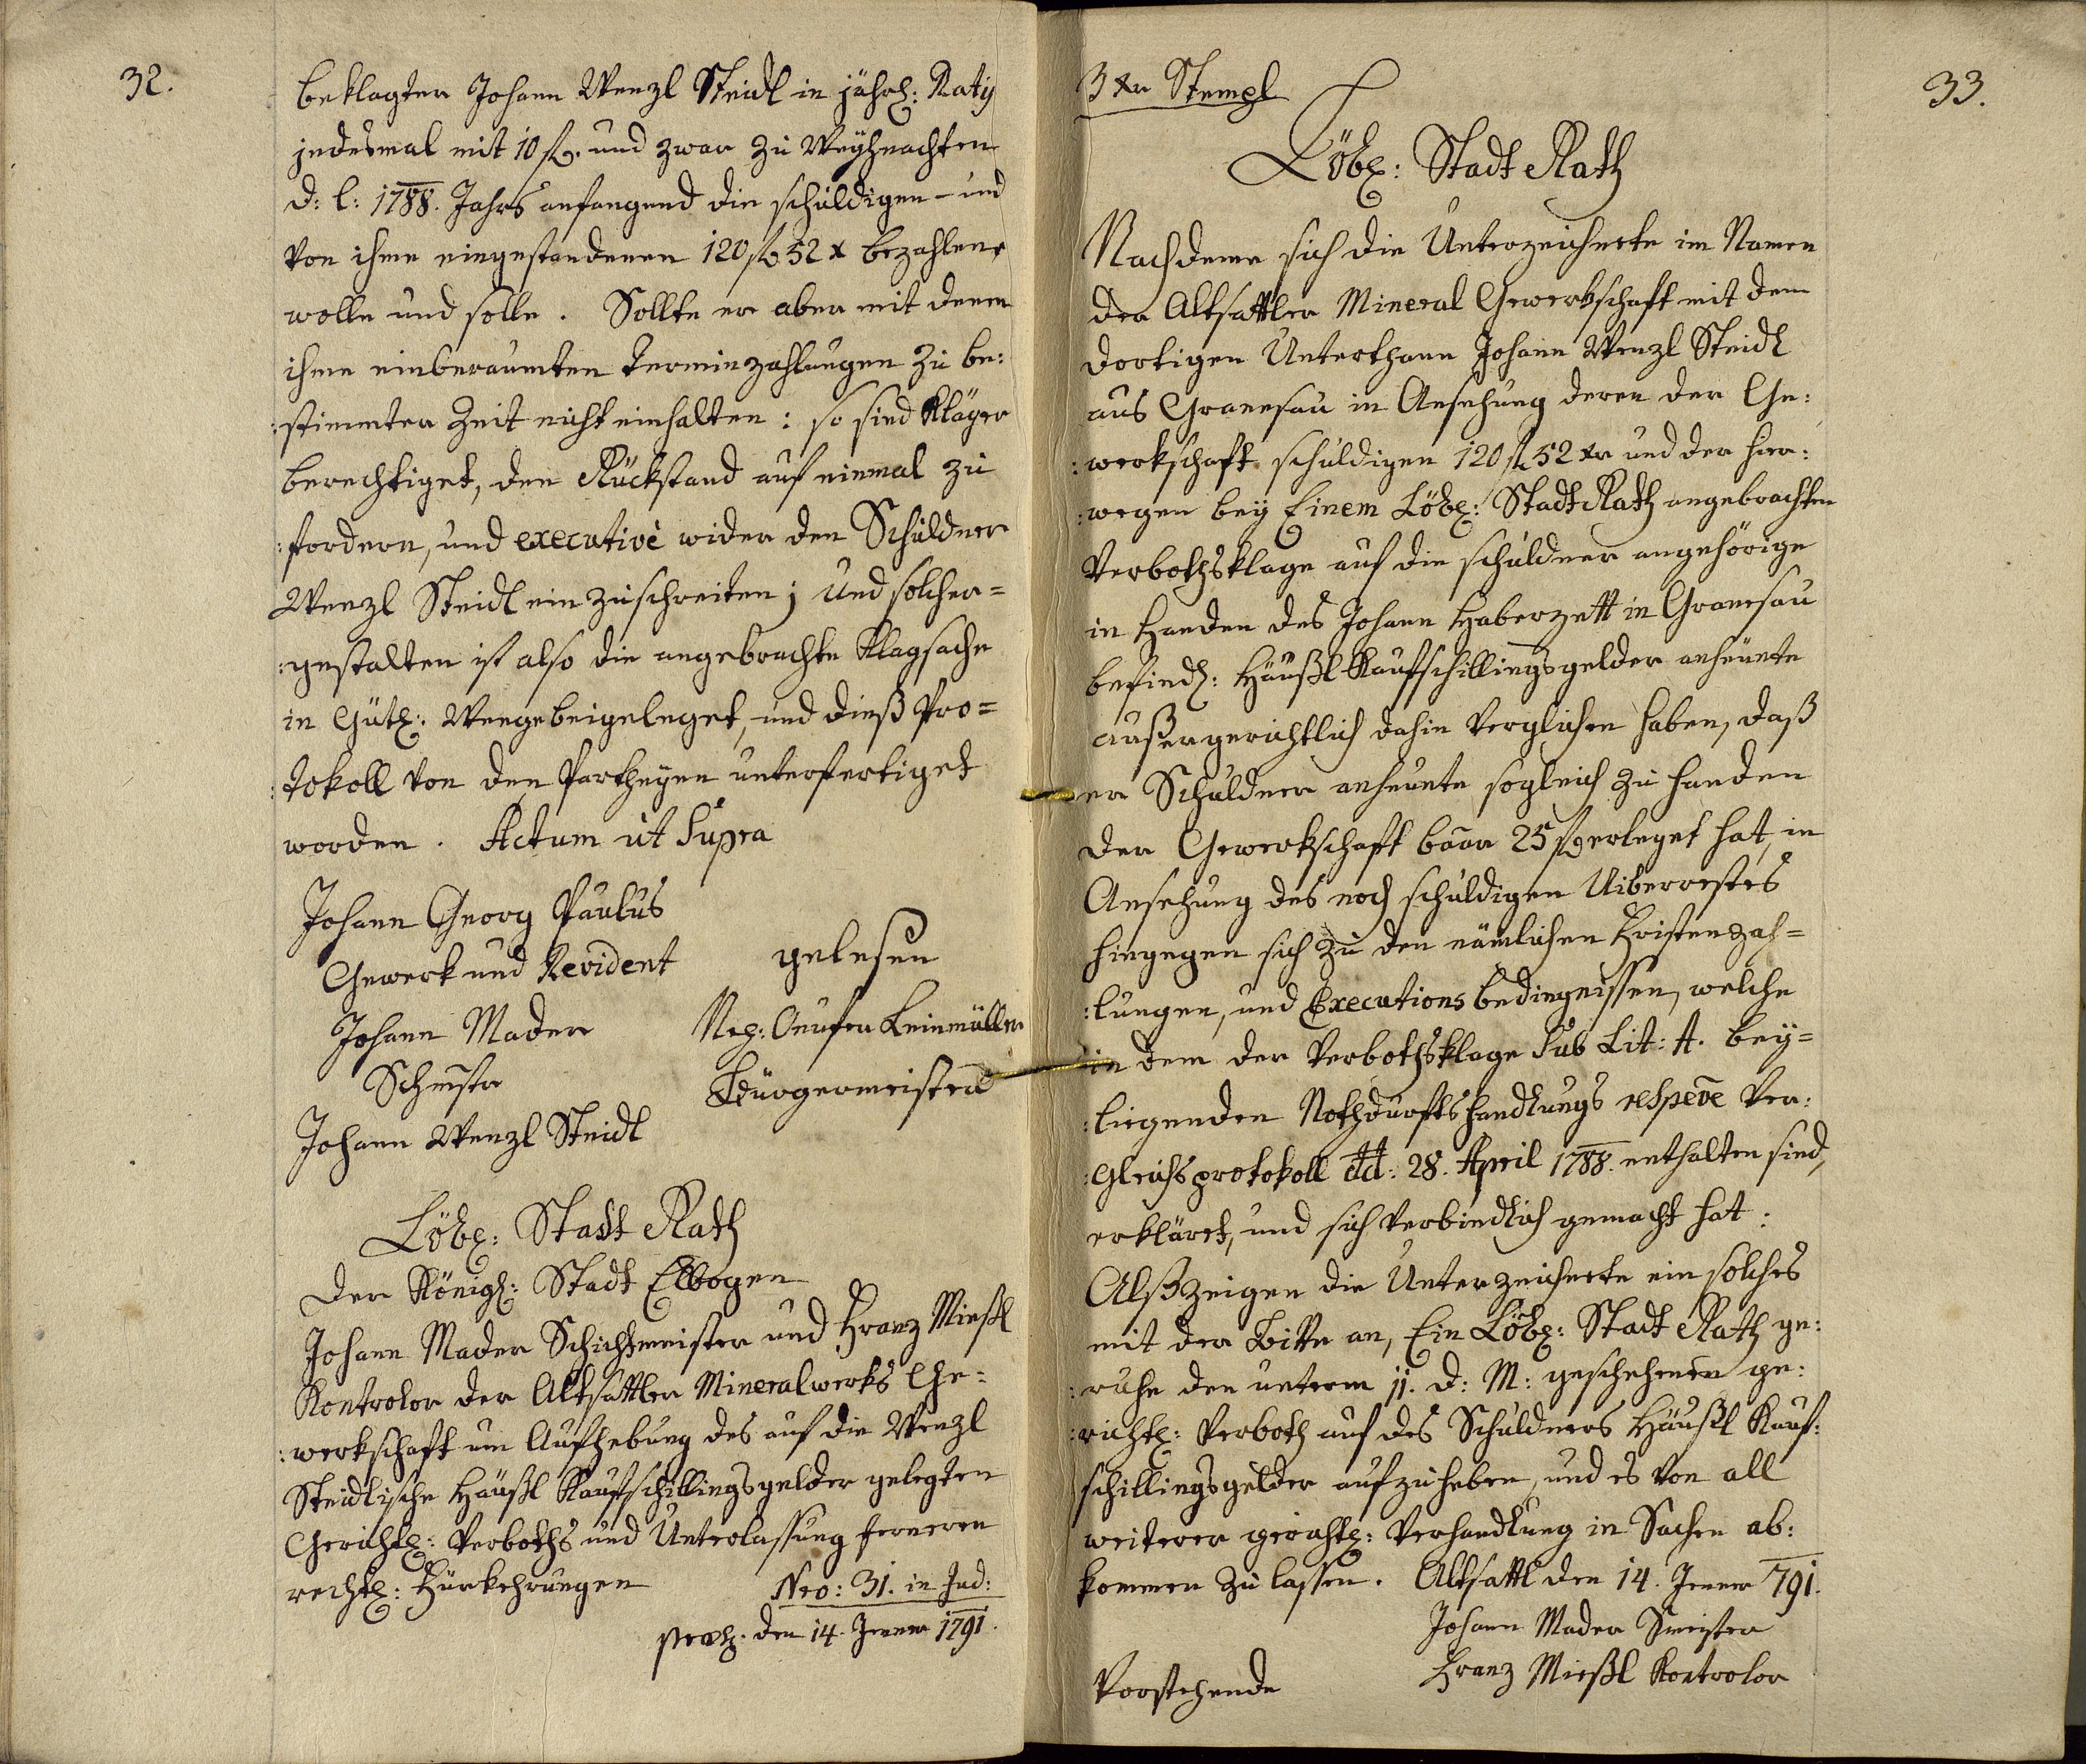 32.
beklagter Johann Wenzl Steidl in jährl: Ratis
jedesmal mit 10 fl. und zwar zu Weyhnachten
d: l: 1788. Jahrs anfangend die schuldigen - und
von ihme eingestandenen 120 fl 52 x bezahlen
wolle und solle. Sollte er aber mit denen
ihme einberaumten Terminzahlungen zu be:
:stimmter Zeit nicht einhalten: so sind Kläger
berechtiget, den Rückstand auf einmal zu
:fordern, und executivè wider den Schuldner
Wenzl Steidl einzuschreiten; und solcher=
:gestalten ist also die angebrachte Klagsache
in Gütl: Weege beigeleget, und dieß Pro=
:tokoll von den Partheyen unterfertiget
worden. Actum ut Supra
Johann Georg Paulus
Gewerk und Revident
gelesen
Johann Mader
Schmstr
Johann Wenzl Steidl
Bürgermeister
Löbl: Stadt Rath
der Königl: Stadt Elbogen
Johann Mader Schichtmeister und Franz Mießl
Kontrolor der Altsattler Mineralwerks Ge=
:werkschaft um Aufhebung des auf die Wenzl
Steidlische Häußl Kaufschillingsgelder gelegten
Gerichtl: Verboths und Unterlassung ferneren
rechtl: Fürkehrungen
Nro: 31. in Jud:
præs. den 14. Jenner 1791.
3 xr Stempl
33.
Löbl: Stadt Rath
Nachdeme sich die Unterzeichnete im Namen
der Altsattler Mineral Gewerkschaft mit dem
dortigen Unterthann Johann Wenzl Steidl
aus Granesau in Ansehung deren der Ge:
:werkschaft schuldigen 120 fl 52 xr und der hier:
:wegen bey Einem Löbl: Stadt Rath angebrachten
Verbothsklage auf die schuldner angehörige
in Handen des Johann Haberzett in Granesau
befindl: Häußl Kaufschillingsgelder anheunte
außergerichtlich dahin verglichen haben, daß
er Schuldner anheunte sogleich zu Handen
der Gewerkschaft baar 25 fl erleget hat, in
Ansehung des noch schuldigen Uiberrestes
hingegen sich zu den nämlichen Fristenzah=
:lungen, und Executions bedingnissen, welche
in dem der Verbothsklage Sub Lit: A. bey=
:liegenden Nothdurftshandlungs respeve Ver:
:gleichsprotokoll dd: 28. April 1788. enthalten sind,
erkläret, und sich verbindlich gemacht hat:
Alß zeigen die Unterzeichnete ein solches
mit der Bitte an, Ein Löbl: Stadt Rath ge:
:ruhe den unterm 11. d: M: geschehenen ge:
:richtl: Verboth auf des Schuldners Häußl Kauf:
schillingsgelder aufzuheben, und es von all
weiterer gerichtl: Verhandlung in Sachen ab:
kommen zu lassen. Altsattl den 14. Jenner 791.
Johann Mader Smeister
Franz Mießl Kontrolor
Vorstehende